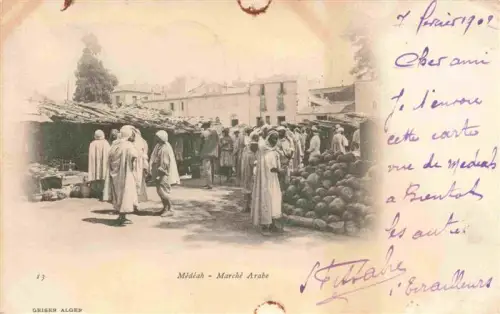 7 février 1902
Cher ami
Je t'envoie
cette carte
vue de medeah
a Bientot
les autres
13
Médéah - Marché Arabe
GEISER ALGER